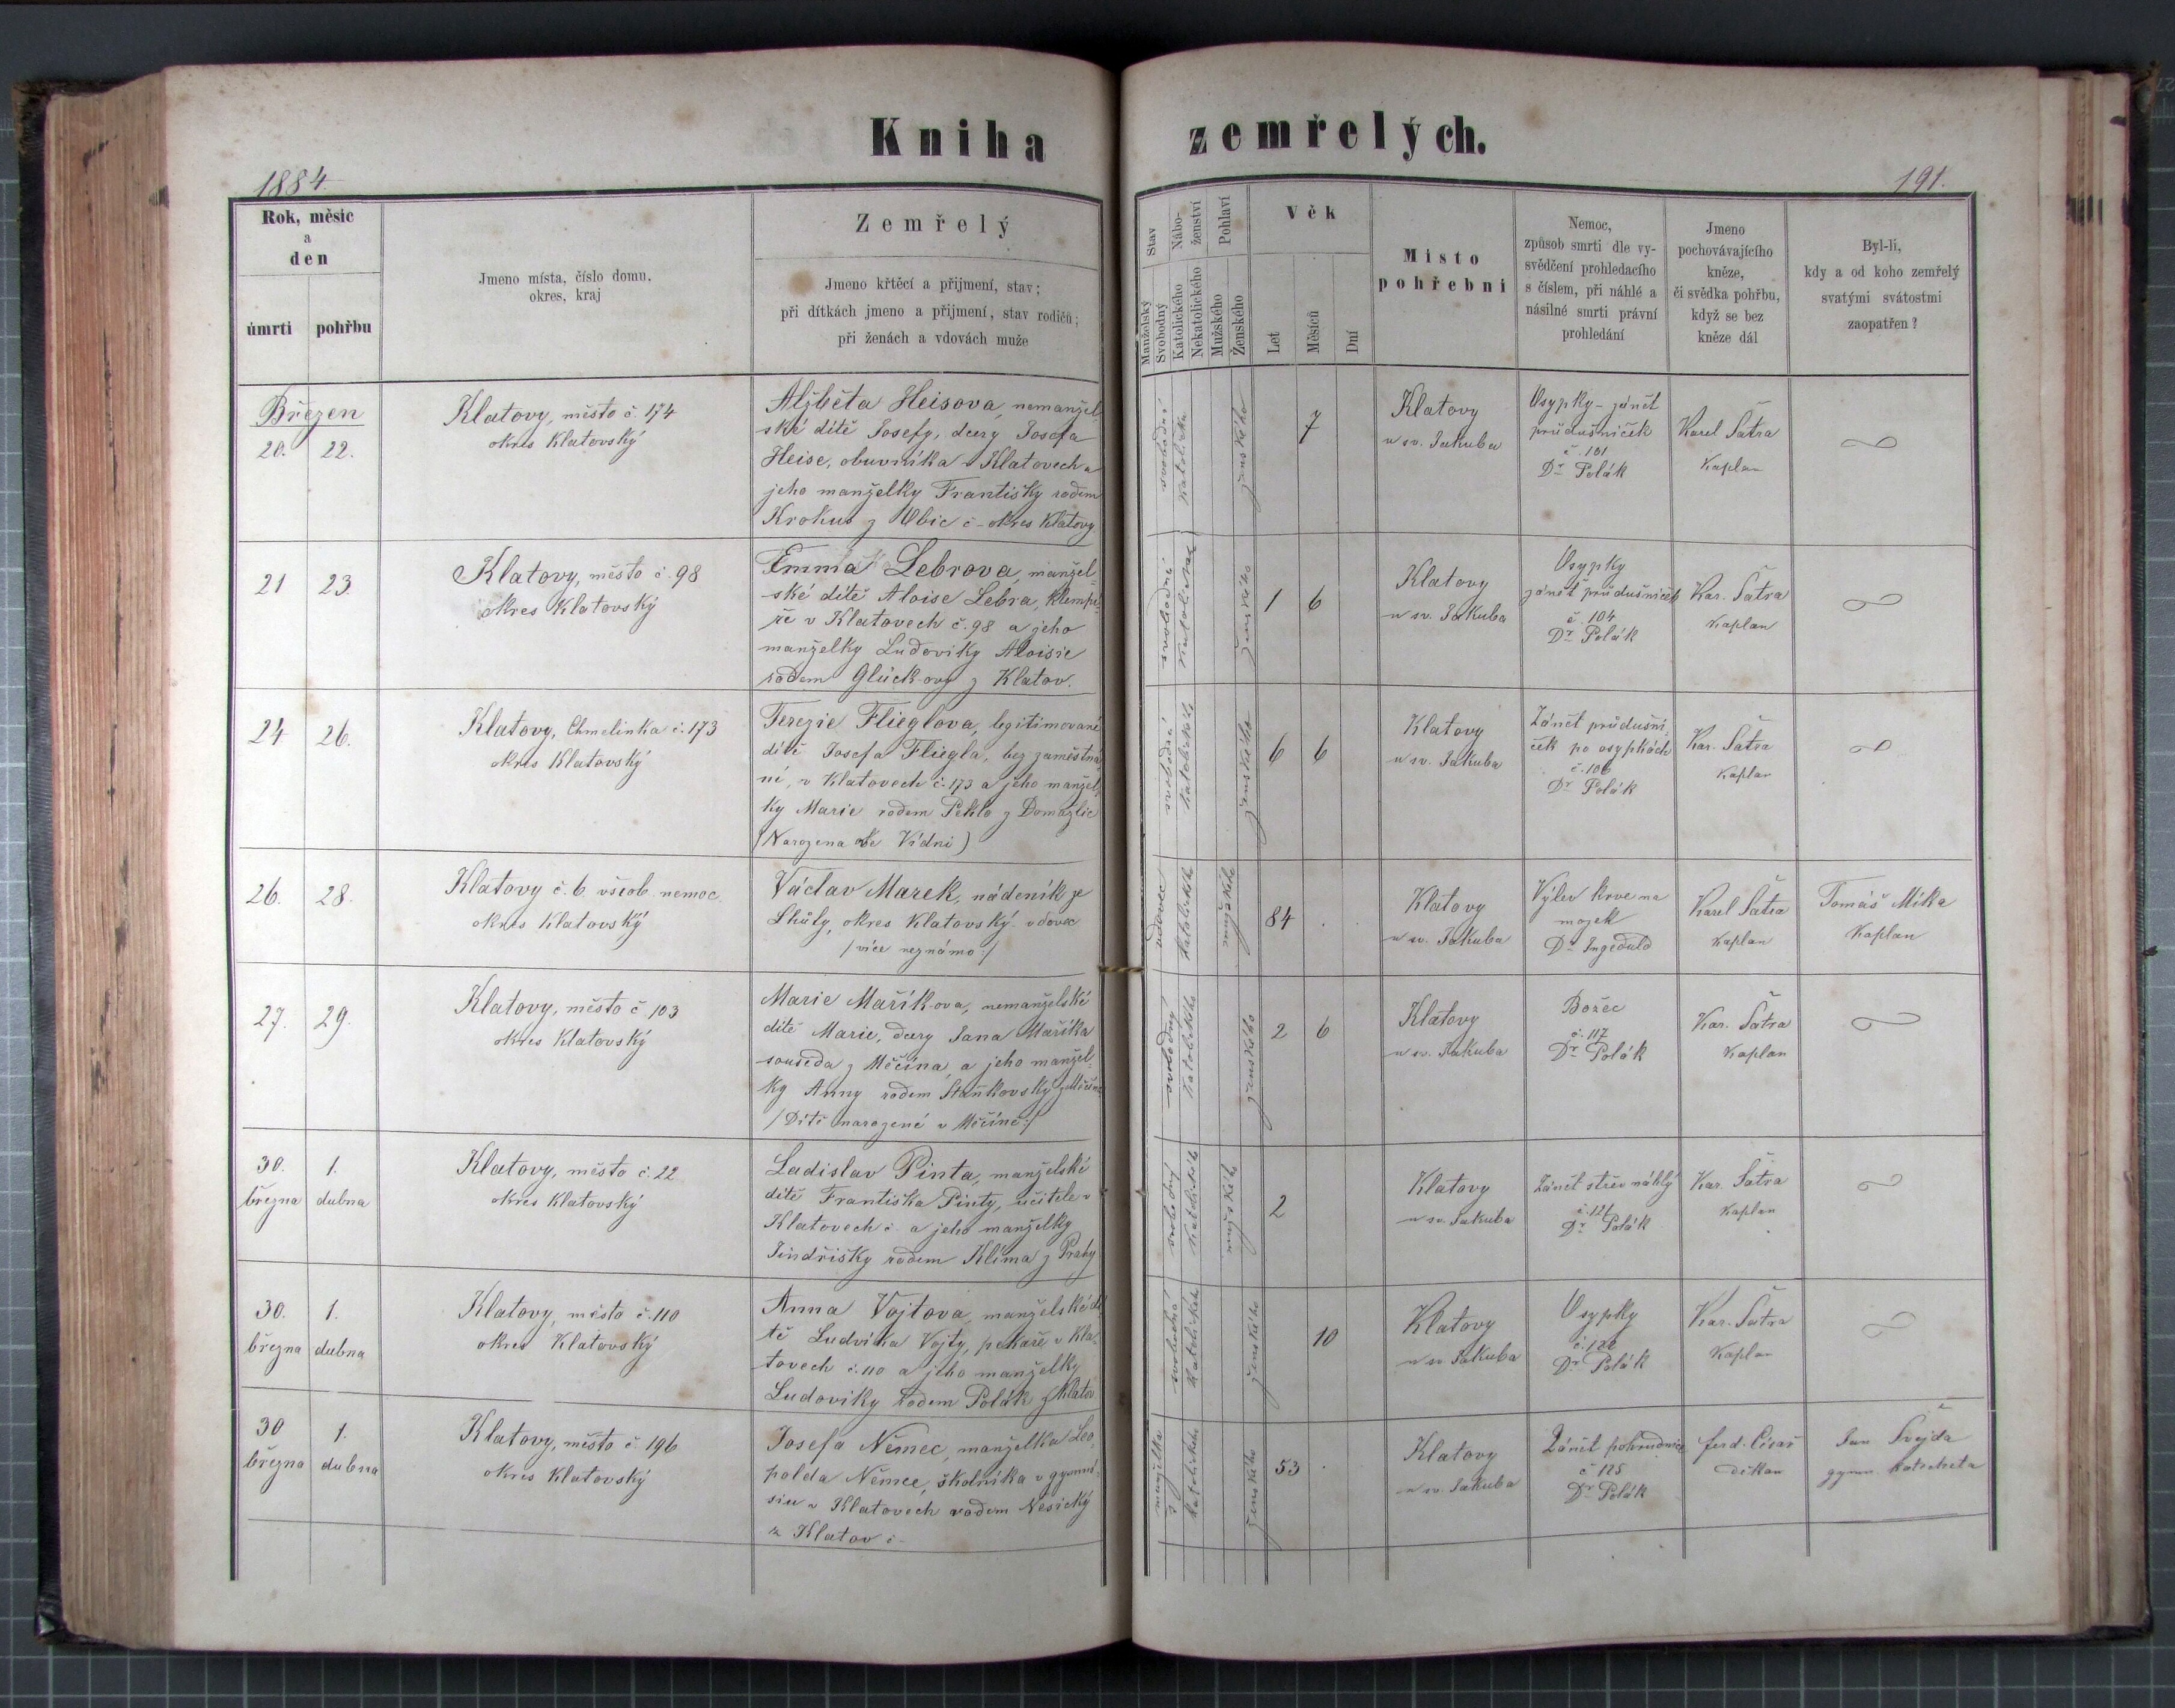 Kniha zemřelých.
1884.
191.
Rok, měsíc
a
den
úmrtí
pohřbu
Jmeno místa, číslo domu,
okres, kraj
Zemřelý
Jmeno křtěcí a přijmení, stav;
při dítkách jmeno a přijmení, stav rodičů;
při ženách a vdovách muže
Stav
Manželský
Svobodný
Nábo-
ženství
Katolického
Nekatolického
Pohlaví
Mužského
Ženského
Věk
Let
Měsíců
Dní
Místo
pohřební
Nemoc,
způsob smrti dle vy-
svědčení prohledacího
s číslem, při náhlé a
násilné smrti právní
prohledání
Jmeno
pochovávajícího
kněze,
či svědka pohřbu,
když se bez
kněze dál
Byl-li,
kdy a od koho zemřelý
svatými svátostmi
zaopatřen?
Březen
20. 22.
Klatovy, město č. 174
okres Klatovský
Alžběta Heisova, nemanžel
ské dítě Josefy, dcery Josefa
Heise, obuvníka v Klatovech a
jeho manželky Františky rodem
Krokus z č - okres Klatovy
svobodná
katolička
ženského
7
Klatovy
u sv. Jakuba
Osypky - zánět
průdušniček
č. 101
Dr. Polák
Karel Šatra
Kaplan
21 23.
Klatovy, město č. 98
okres Klatovský
Emma Lebrova, manžel-
ské dítě Aloise Lebra, klempí-
ře v Klatovech č. 98 a jeho
manželky Ludoviky Aloisie
rodem Glück-ovy z Klatov.
svobodná
ženského
1 6
Klatovy
u sv. Jakuba
Osypky
zánět průdušniček
č. 104
Dr. Polák
Kar. Šatra
Kaplan
24 26.
Klatovy, Chmelinka č. 173
okres Klatovský
Terezie Flieglova, legitimované
dítě Josefa Fliegla, bez zaměstná
ní, v Klatovech č. 173 a jeho manžel-
ky Marie rodem z Domažlic
(Narozena ve Vídni)
svobodná
katolického
ženského
6 6
Klatovy
u sv. Jakuba
Zánět průdušni-
ček po osypkách
č. 106
Dr. Polák
Kar. Šatra
Kaplan
26. 28.
Klatovy č. 6 všeob. nemoc.
okres Klatovský
Václav Marek, nádeník ze
Lhůty, okres Klatovský vdovec
/více neznámo:/
vdovec
katolického
mužského
84 .
Klatovy
u sv. Jakuba
Výlev krve na
mozek
Dr. Ingeduld
Karel Šatra
Kaplan
Tomáš Mika
Kaplan
27. 29.
Klatovy, město č. 103
okres Klatovský
Marie Maříkova, nemanželské
dítě Marie, dcery Jana Maříka
souseda z Měčína, a jeho manžel-
ky Anny rodem Staňkovský z Měčína
/Dítě narozené v Měčíně:/
svobodný
katolického
ženského
2 6
Klatovy
u sv. Jakuba
Božec
č. 117
Dr. Polák
Kar. Šatra
Kaplan
30. 1.
března dubna
Klatovy, město č. 22
okres Klatovský
Ladislav Pinta, manželské
dítě Františka Pinty, učitele v
Klatovech č. a jeho manželky
Jindřišky rodem Klíma z Prahy
svobodný
katolického
mužského
2
Klatovy
u sv. Jakuba
Zánět střev náhlý
č. 121
Dr. Polák
Kar. Šatra
Kaplan
30. 1.
března dubna
Klatovy, město č. 110
okres Klatovský
Anna Vojtova, manželské dí
tě Ludvíka Vojty, pekaře v Kla-
tovech č. 110 a jeho manželky
Ludoviky rodem Polák z Klatov
svobodná
katolického
ženského
10
Klatovy
u sv. Jakuba
Osypky
č. 122
Dr. Polák
Kar. Šatra
Kaplan
30 1.
března dubna
Klatovy, město č. 196
okres Klatovský
Josefa Němec, manželka Leo-
polda Němce, školníka v gymná-
siu v Klatovech rodem Nesický
z Klatov č -
manželka
katolického
ženského
53 .
Klatovy
u sv. Jakuba
Zánět pohrudnice
č 125
Dr. Polák
Ferd. Císař
děkan
Jan Švejda
gymn. katecheta